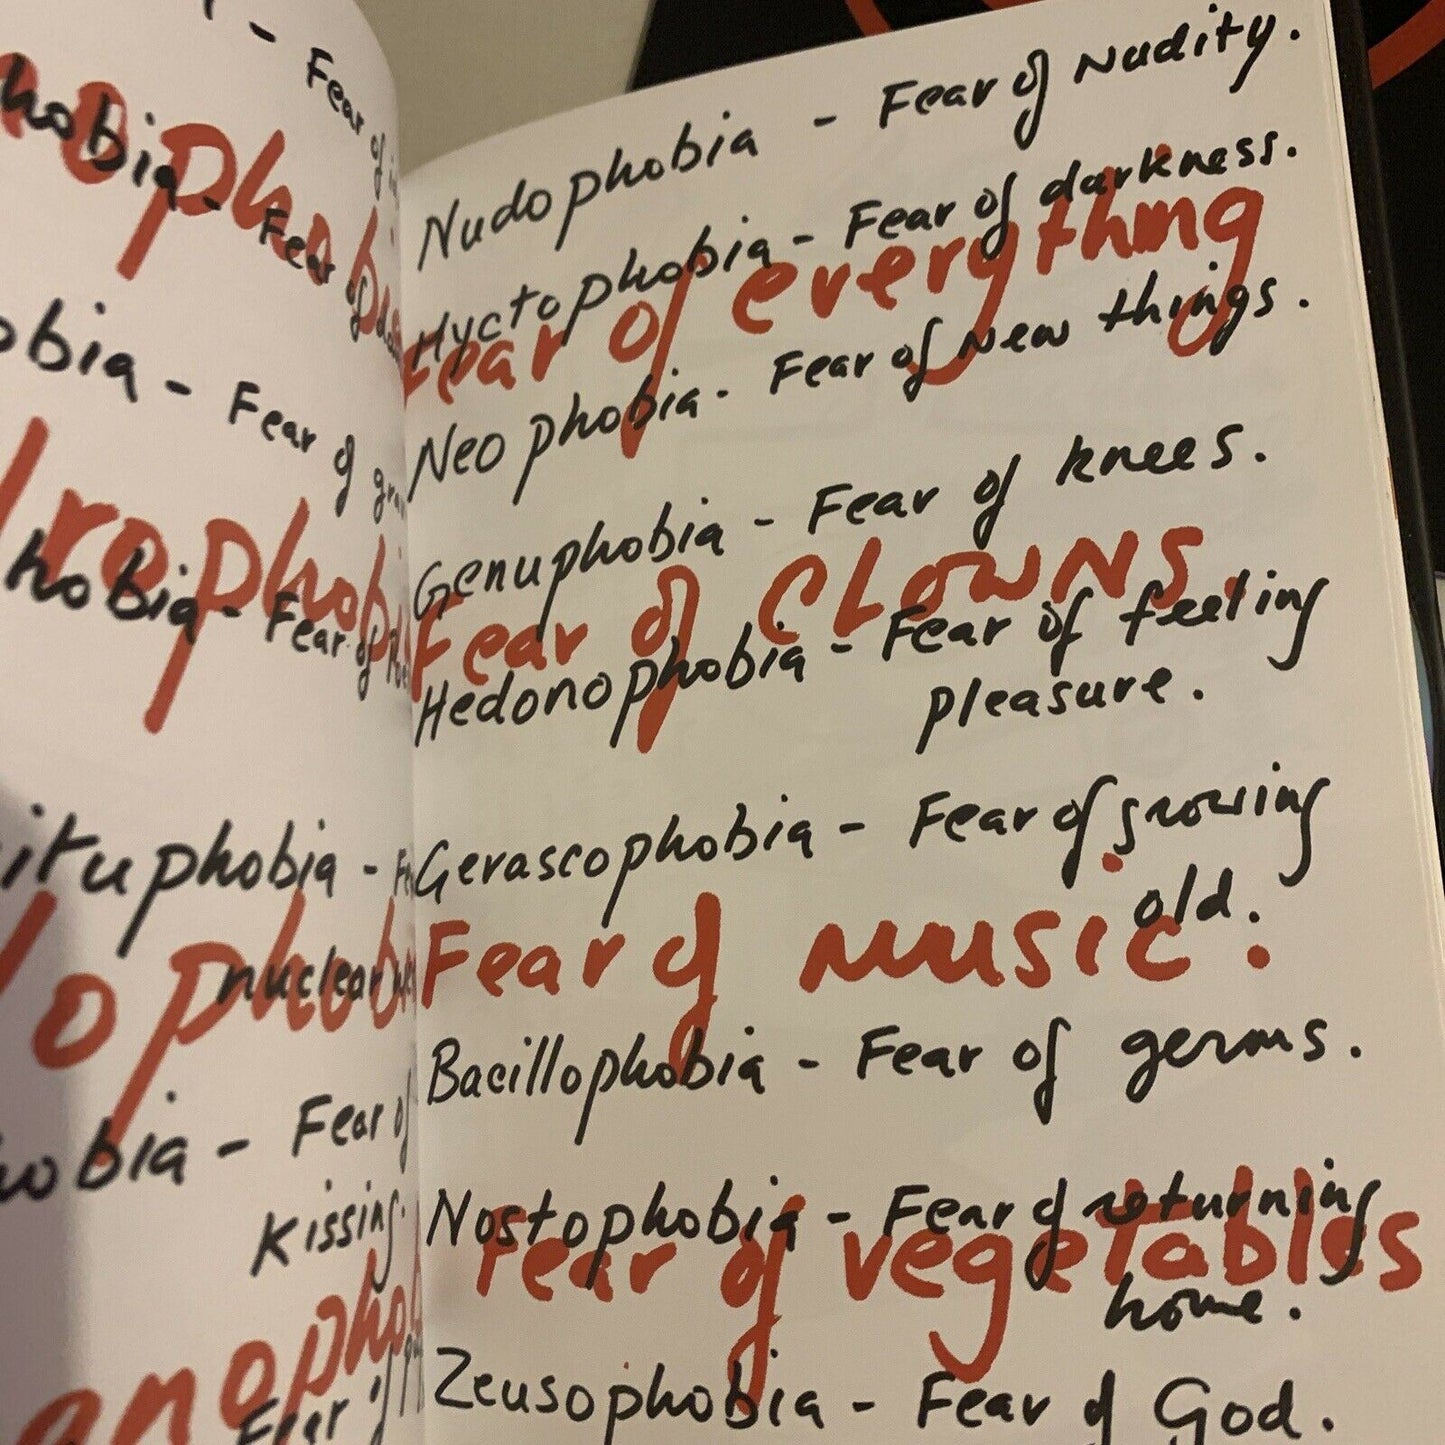 - Fear of
hobia - Fear of
obia - Fear of
hobia - Fear of
ituphobia -
nuclear
hobia - Fear of
Kissing.
Fear of
Nudophobia - Fear of Nudity.
Hyctophobia - Fear of darkness.
Fear of everything
Neophobia - Fear of New things.
Genuphobia - Fear of knees.
Fear of CLOWNS.
Hedonophobia - Fear of feeling
pleasure.
Gerascophobia - Fear of growing
old.
Fear of music.
Bacillophobia - Fear of germs.
Nostophobia - Fear of returning
Fear of vegetables
home.
Zeusophobia - Fear of God.